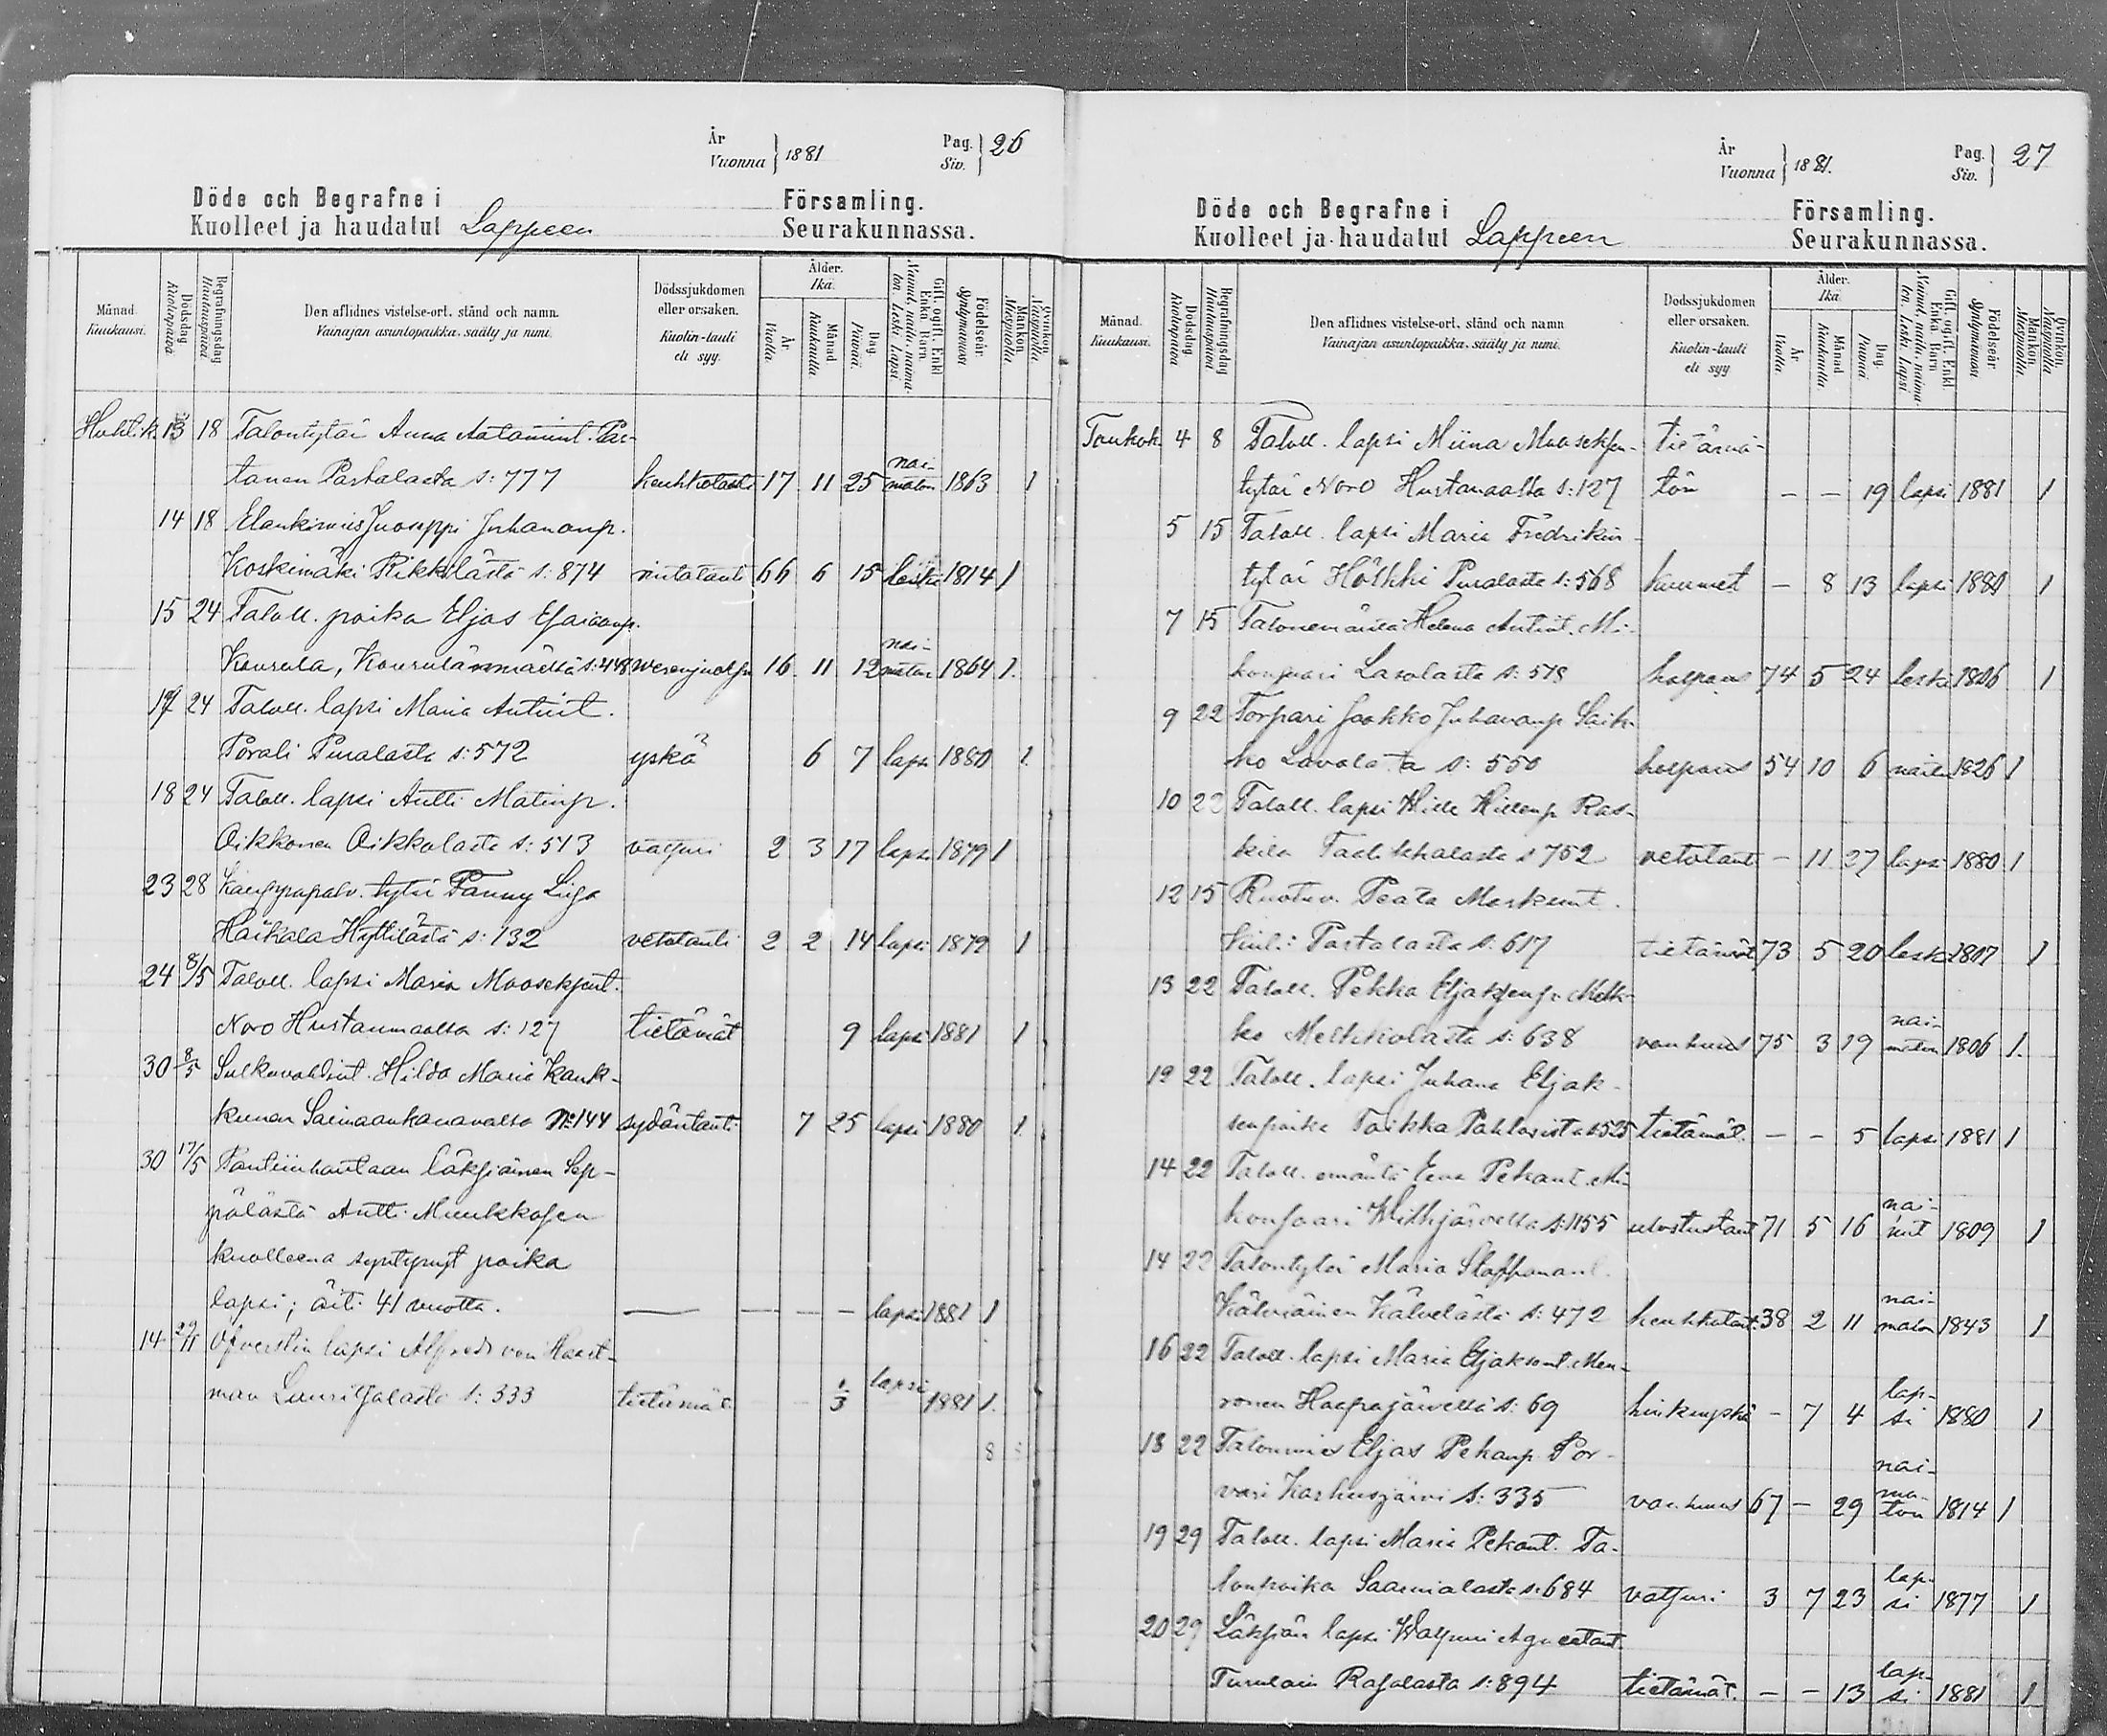 År
Vuonna 1881 Pag. Siv. 26
Döde och Begrafne i Församling.
Kuolleet ja haudatut Lappeen Seurakunnassa.
Månad. Kuukausi. Dödsdag Kuolinpäivä Begrafningsdag Hautauspäivä Den aflidnes vistelse-ort, stånd och namn. Vainajan asuntopaikka, sääty ja nimi. Dödssjukdomen eller orsaken. Kuolin-tauti eli syy. Ålder. Ikä. År Vuotta. Månad Kuukautta. Dag Päivää. Gift, ogift, Enkl. Enka Barn Födelseår Syntymävuosi Mankön Miespuolia Qvinkön Naispuolia
Huhtik. 13 18 Talontytär Anna Aatamint. Par-
tanen Partalasta s: 777 keuhkotauti 17 11 25 nai-maton 1863 1
14 18 Juoseppi Juhananp.
Koskimäki Rikkilästä s: 874 rintatauti 66 6 15 leski 1814 1
15 24 Taloll. poika Eljas
Kourula, s: 448 16 11 12 nai-maton 1864 1.
17 24 Taloll. lapsi Maria Antint.
Porali Puralasta s: 572 yskä 6 7 lapsi 1880 1
18 24 Taloll. lapsi Antti Matinp.
Oikkonen Oikkolasta s: 543 2 3 17 lapsi 1879 1
23 28 tytär Fanny Liisa
Häikälä Hyttilästä s: 132 vetotauti 2 2 14 lapsi 1879 1
24 8/5 Taloll. lapsi Maria Mooseksent.
Noro Hurtanmaalta s: 127 tietämät 9 lapsi 1881 1
30 8/5 Sulkuvahdint. Hilda Maria Kauk-
kunen Saimaankanavalta No 144 sydäntauti 7 25 lapsi 1880 1.
30 17/5 läksiäinen Sep-
pälästä Antti Muukkosen
kuolleena syntynyt poika
lapsi; äiti 41 vuotta. — — — — lapsi 1881 1
14 Öfverstin lapsi Alfred von Haart-
man Lauritsalasta s: 333 tietämät 1/3 lapsi 1881 1.
8
År
Vuonna 1881. Pag. Siv. 27
Döde och Begrafne i Församling.
Kuolleet ja haudatut Lappeen Seurakunnassa.
Månad. Kuukausi. Dödsdag Kuolinpäivä Begrafningsdag Hautauspäivä Den aflidnes vistelse-ort, stånd och namn Vainajan asuntopaikka, sääty ja nimi. Dödssjukdomen eller orsaken. Kuolin-tauti eli syy Ålder. Ikä År Vuotta Månad Kuukautta Dag Päivää. Gift, ogift, Enkl. Enka Barn Födelseår Syntymävuosi Mankön Miespuolia Qvinkön Naispuolia
Toukok. 4 8 Taloll. lapsi Miina Mooseksen- tietämä-
tytär Noro Hurtanaalta s: 127 tön – – 19 lapsi 1881 1
5 15 Taloll. lapsi Maria Fredrikin-
tytär Hölkki Puralasta s: 568 kuumet – 8 13 lapsi 1880 1
7 15 Talonemäntä Helena Antint. Mi-
konsaari Lavolasta s: 578 halpaus 74 5 24 leski 1806 1
9 22 Torpari Jaakko Juhananp. Saik-
ko Lavolasta s: 550 halpaus 54 10 6 nainu 1826 1
10 22 Taloll. lapsi Wille Willenp. Ras-
kila s 752 vetotauti – 11 27 lapsi 1880 1
12 15 Ruotuv. Peata Markunt.
Partalasta s: 617 tietämät 73 5 20 leski 1807 1
13 22 Taloll. Pekka Eljaksenp. Melk-
ko Melkkolasta s: 638 vanhuus 75 3 19 nai-maton 1806 1.
12 22 Taloll. lapsi Juhana Eljak-
senpoika Taikka s: 525 tietämät. – – 5 lapsi 1881 1
14 22 Taloll. emäntä Eeva Pekant. Mi-
konsaari s: 1155 ulostustaut 71 5 16 nai-nut 1809 1
14 22 Talontytär Maria Staffanant.
Kälviäinen Kälvelästä s: 472 keuhkotaut. 38 2 11 nai-maton 1843 1
16 22 Taloll. lapsi Maria Eljaksent. Men-
ronen Haapajärveltä s: 69 hinkuyskä – 7 4 lap-si 1880 1
18 22 Talonmies Eljas Pekanp. Por-
vari Karhusjärvi s: 335 vanhuus 67 – 29 nai-ma-ton 1814 1
19 29 Taloll. lapsi Maria Pekant. Ta-
lonpoika s: 684 3 7 23 lap-si 1877 1
20 29 Läksiän lapsi Agneetant.
s: 894 tietämät. – – 13 lap-si 1881 1